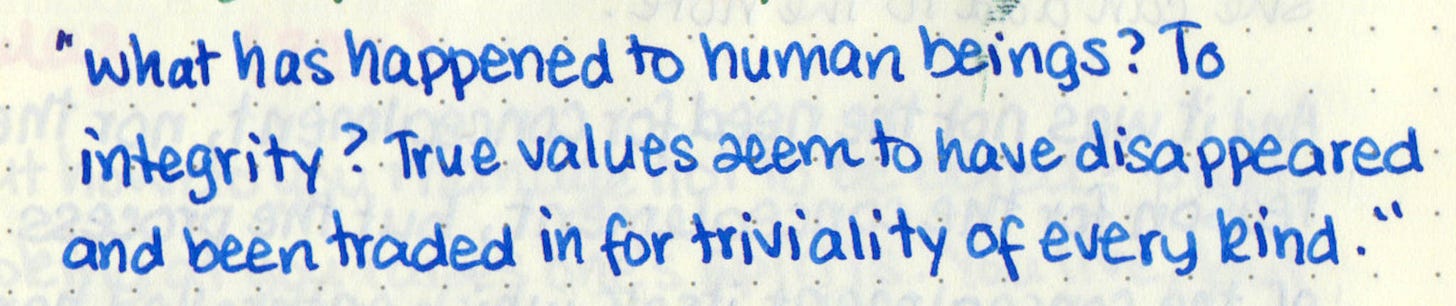 "What has happened to human beings? To
integrity? True values seem to have disappeared
and been traded in for triviality of every kind."